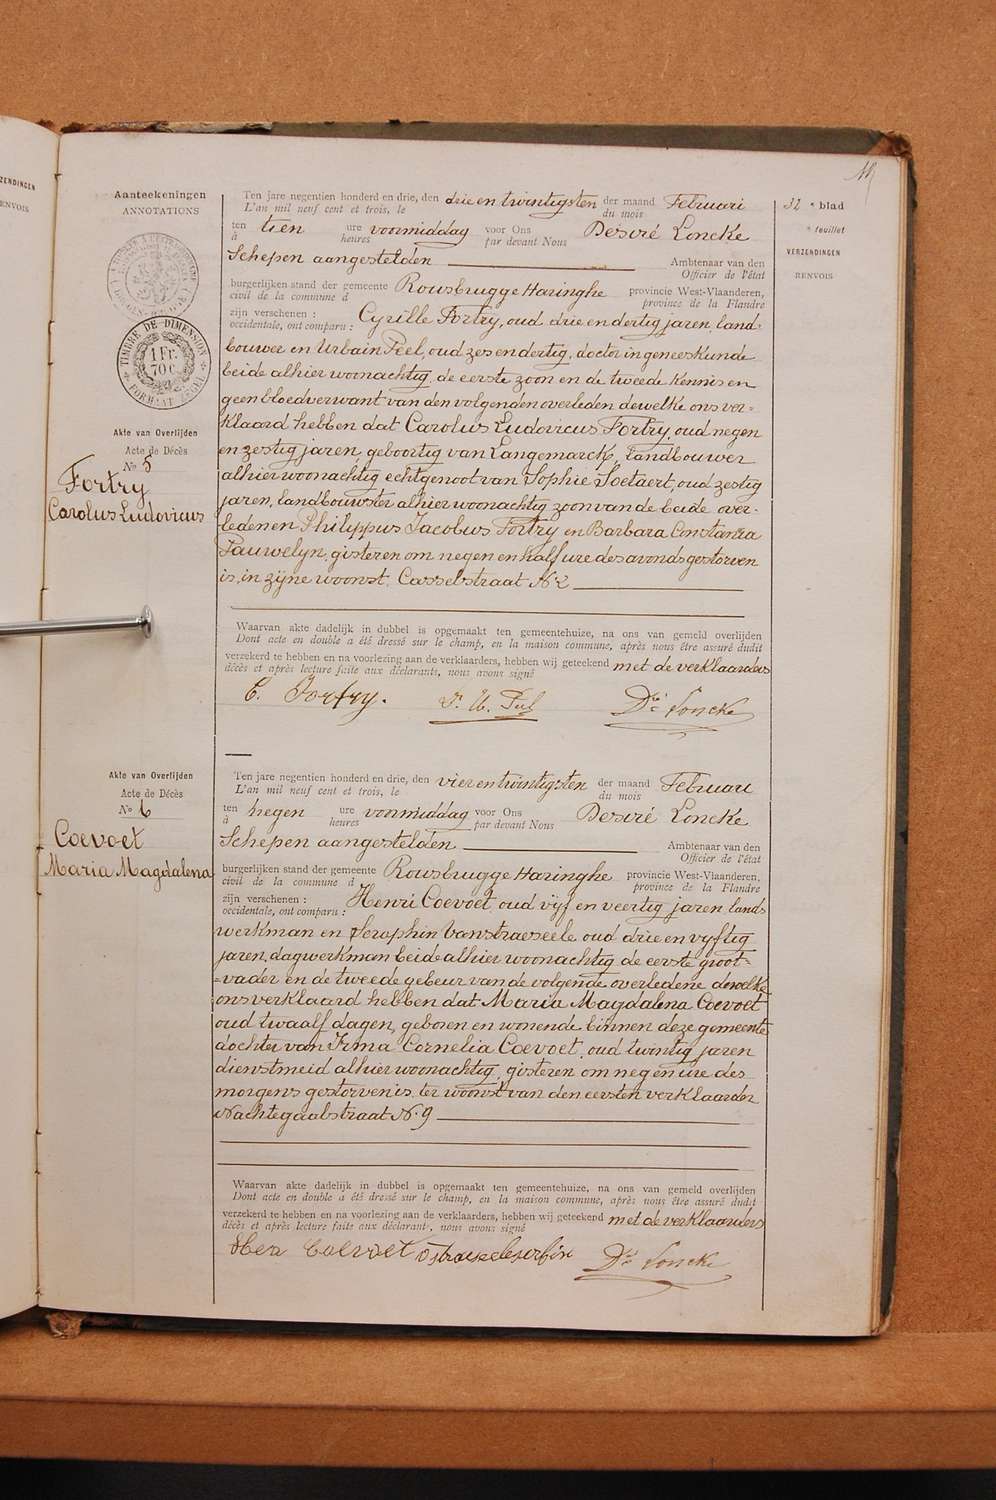 ZENDINGEN
ENVOIS
19
Aanteekeningen
ANNOTATIONS
TIMBRE DE DIMENSION
1 Fr.
70 c
32 e blad
e feuillet
VERZENDINGEN
RENVOIS
Ten jare negentien honderd en drie, den drie en twintigsten der maand Februari
L'an mil neuf cent et trois, le du mois
ten tien ure voormiddag voor Ons Desiré Loncke
à heures par devant Nous
Schepen aangestelden Ambtenaar van den
Officier de l'état
burgerlijken stand der gemeente Rousbrugge Haringhe provincie West-Vlaanderen,
civil de la commune d province de la Flandre
zijn verschenen : Cyrille Fortry, oud drie en dertig jaren, land-
occidentale, ont comparu :
bouwer en Urbain Peel, oud zes en dertig, doctor in geneeskunde
beide alhier woonachtig, de eerste zoon en de tweede kennis en
geen bloedverwant van den volgenden overleden dewelke ons ver-
klaard hebben dat Carolus Ludovicus Fortry, oud negen
en zestig jaren, geboortig van Langemarck, landbouwer
alhier woonachtig echtgenoot van Sophie Soetaert, oud zestig
jaren, landbouwster alhier woonachtig zoon van de beide over-
ledenen Philippus Jacobus Fortry en Barbara Constantia
Pauwelyn, gisteren om negen en half ure des avonds gestorven
is, in zijne woonst, Casselstraat No 2
Akte van Overlijden
Acte de Décès
No 5
Fortry
Carolus Ludovicus
Waarvan akte dadelijk in dubbel is opgemaakt ten gemeentehuize, na ons van gemeld overlijden
Dont acte en double a été dressé sur le champ, en la maison commune, après nous être assuré dudit
verzekerd te hebben en na voorlezing aan de verklaarders, hebben wij geteekend met de verklaarders
décès et après lecture faite aux déclarants, nous avons signé
C. Fortry. Dr U. Peel Dré Loncke
Akte van Overlijden
Acte de Décès
No 6
Coevoet
Maria Magdalena
Ten jare negentien honderd en drie, den vier en twintigsten der maand Februari
L'an mil neuf cent et trois, le du mois
ten negen ure voormiddag voor Ons Desiré Loncke
à heures par devant Nous
Schepen aangestelden Ambtenaar van den
Officier de l'état
burgerlijken stand der gemeente Rousbrugge Haringhe provincie West-Vlaanderen,
civil de la commune d province de la Flandre
zijn verschenen : Henri Coevoet, oud vijf en veertig jaren, lands-
occidentale, ont comparu :
werkman en Seraphin Vanstraeseele oud drie en vyftig
jaren, dagwerkman beide alhier woonachtig de eerste groot-
-vader en de tweede gebeur van de volgende overledene dewelke
ons verklaard hebben dat Maria Magdalena Coevoet
oud twaalf dagen, geboren en wonende binnen deze gemeente
dochter van Irma Cornelia Coevoet, oud twintig jaren
dienstmeid alhier woonachtig, gisteren om negen ure des
morgens gestorven is, ter woonst van den eersten verklaarder
Nachtegaalstraat No 9
Waarvan akte dadelijk in dubbel is opgemaakt ten gemeentehuize, na ons van gemeld overlijden
Dont acte en double a été dressé sur le champ, en la maison commune, après nous être assuré dudit
verzekerd te hebben en na voorlezing aan de verklaarders, hebben wij geteekend met de verklaarders
décès et après lecture faite aux déclarant, nous avons signé
Coevoet Dré Loncke